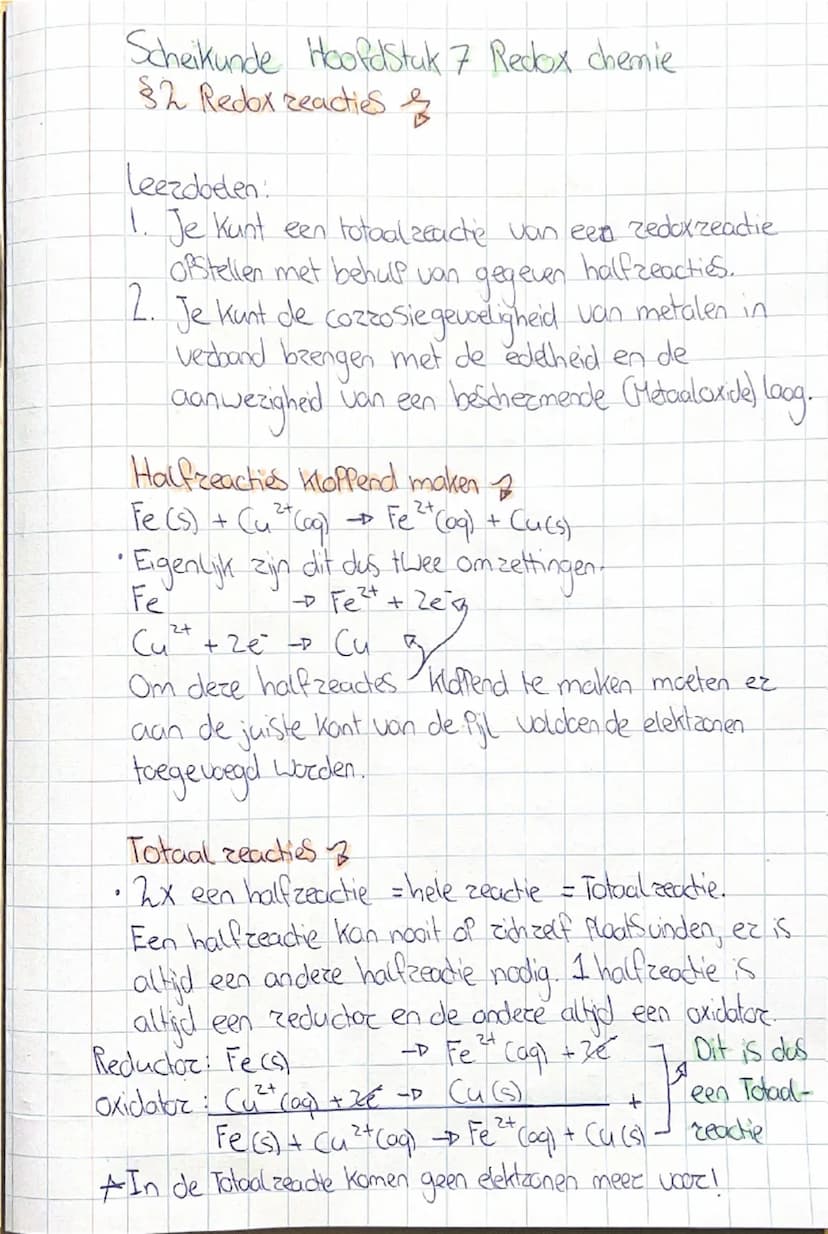 Scheikunde Hoofdstuk 7 Redox chemie
§2 Redoxreacties
Leerdoelen:
1. Je kunt een totaalreactie van een redoxreactie
opstellen met behulp van gegeven halfreacties.
2. Je kunt de corrosiegevoeligheid van metalen in
verband brengen met de edelheid en de
aanwezigheid van een beschermende (Metaaloxide) laag.
Halfreacties kloppend maken
Fe (s) + Cu²⁺(aq) → Fe²⁺(aq) + Cu(s)
• Eigenlijk zijn dit dus twee omzettingen.
Fe → Fe²⁺ + 2e⁻
Cu²⁺ + 2e⁻ → Cu
Om deze halfreacties kloppend te maken moeten er
aan de juiste kant van de pijl voldoende elektronen
toegevoegd worden.
Totaal reacties
• 2x een halfreactie = hele reactie = Totaalreactie.
Een halfreactie kan nooit op zichzelf plaatsvinden, er is
altijd een andere halfreactie nodig. 1 halfreactie is
altijd een reductor en de andere altijd een oxidator.
Reductor: Fe(s) → Fe²⁺ (aq) + 2e⁻
Oxidator: Cu²⁺(aq) + 2e⁻ → Cu(s) +
Fe(s) + Cu²⁺(aq) → Fe²⁺(aq) + Cu(s)
Dit is dus
een Totaal-
reactie
*In de Totaalreactie komen geen elektronen meer voor!